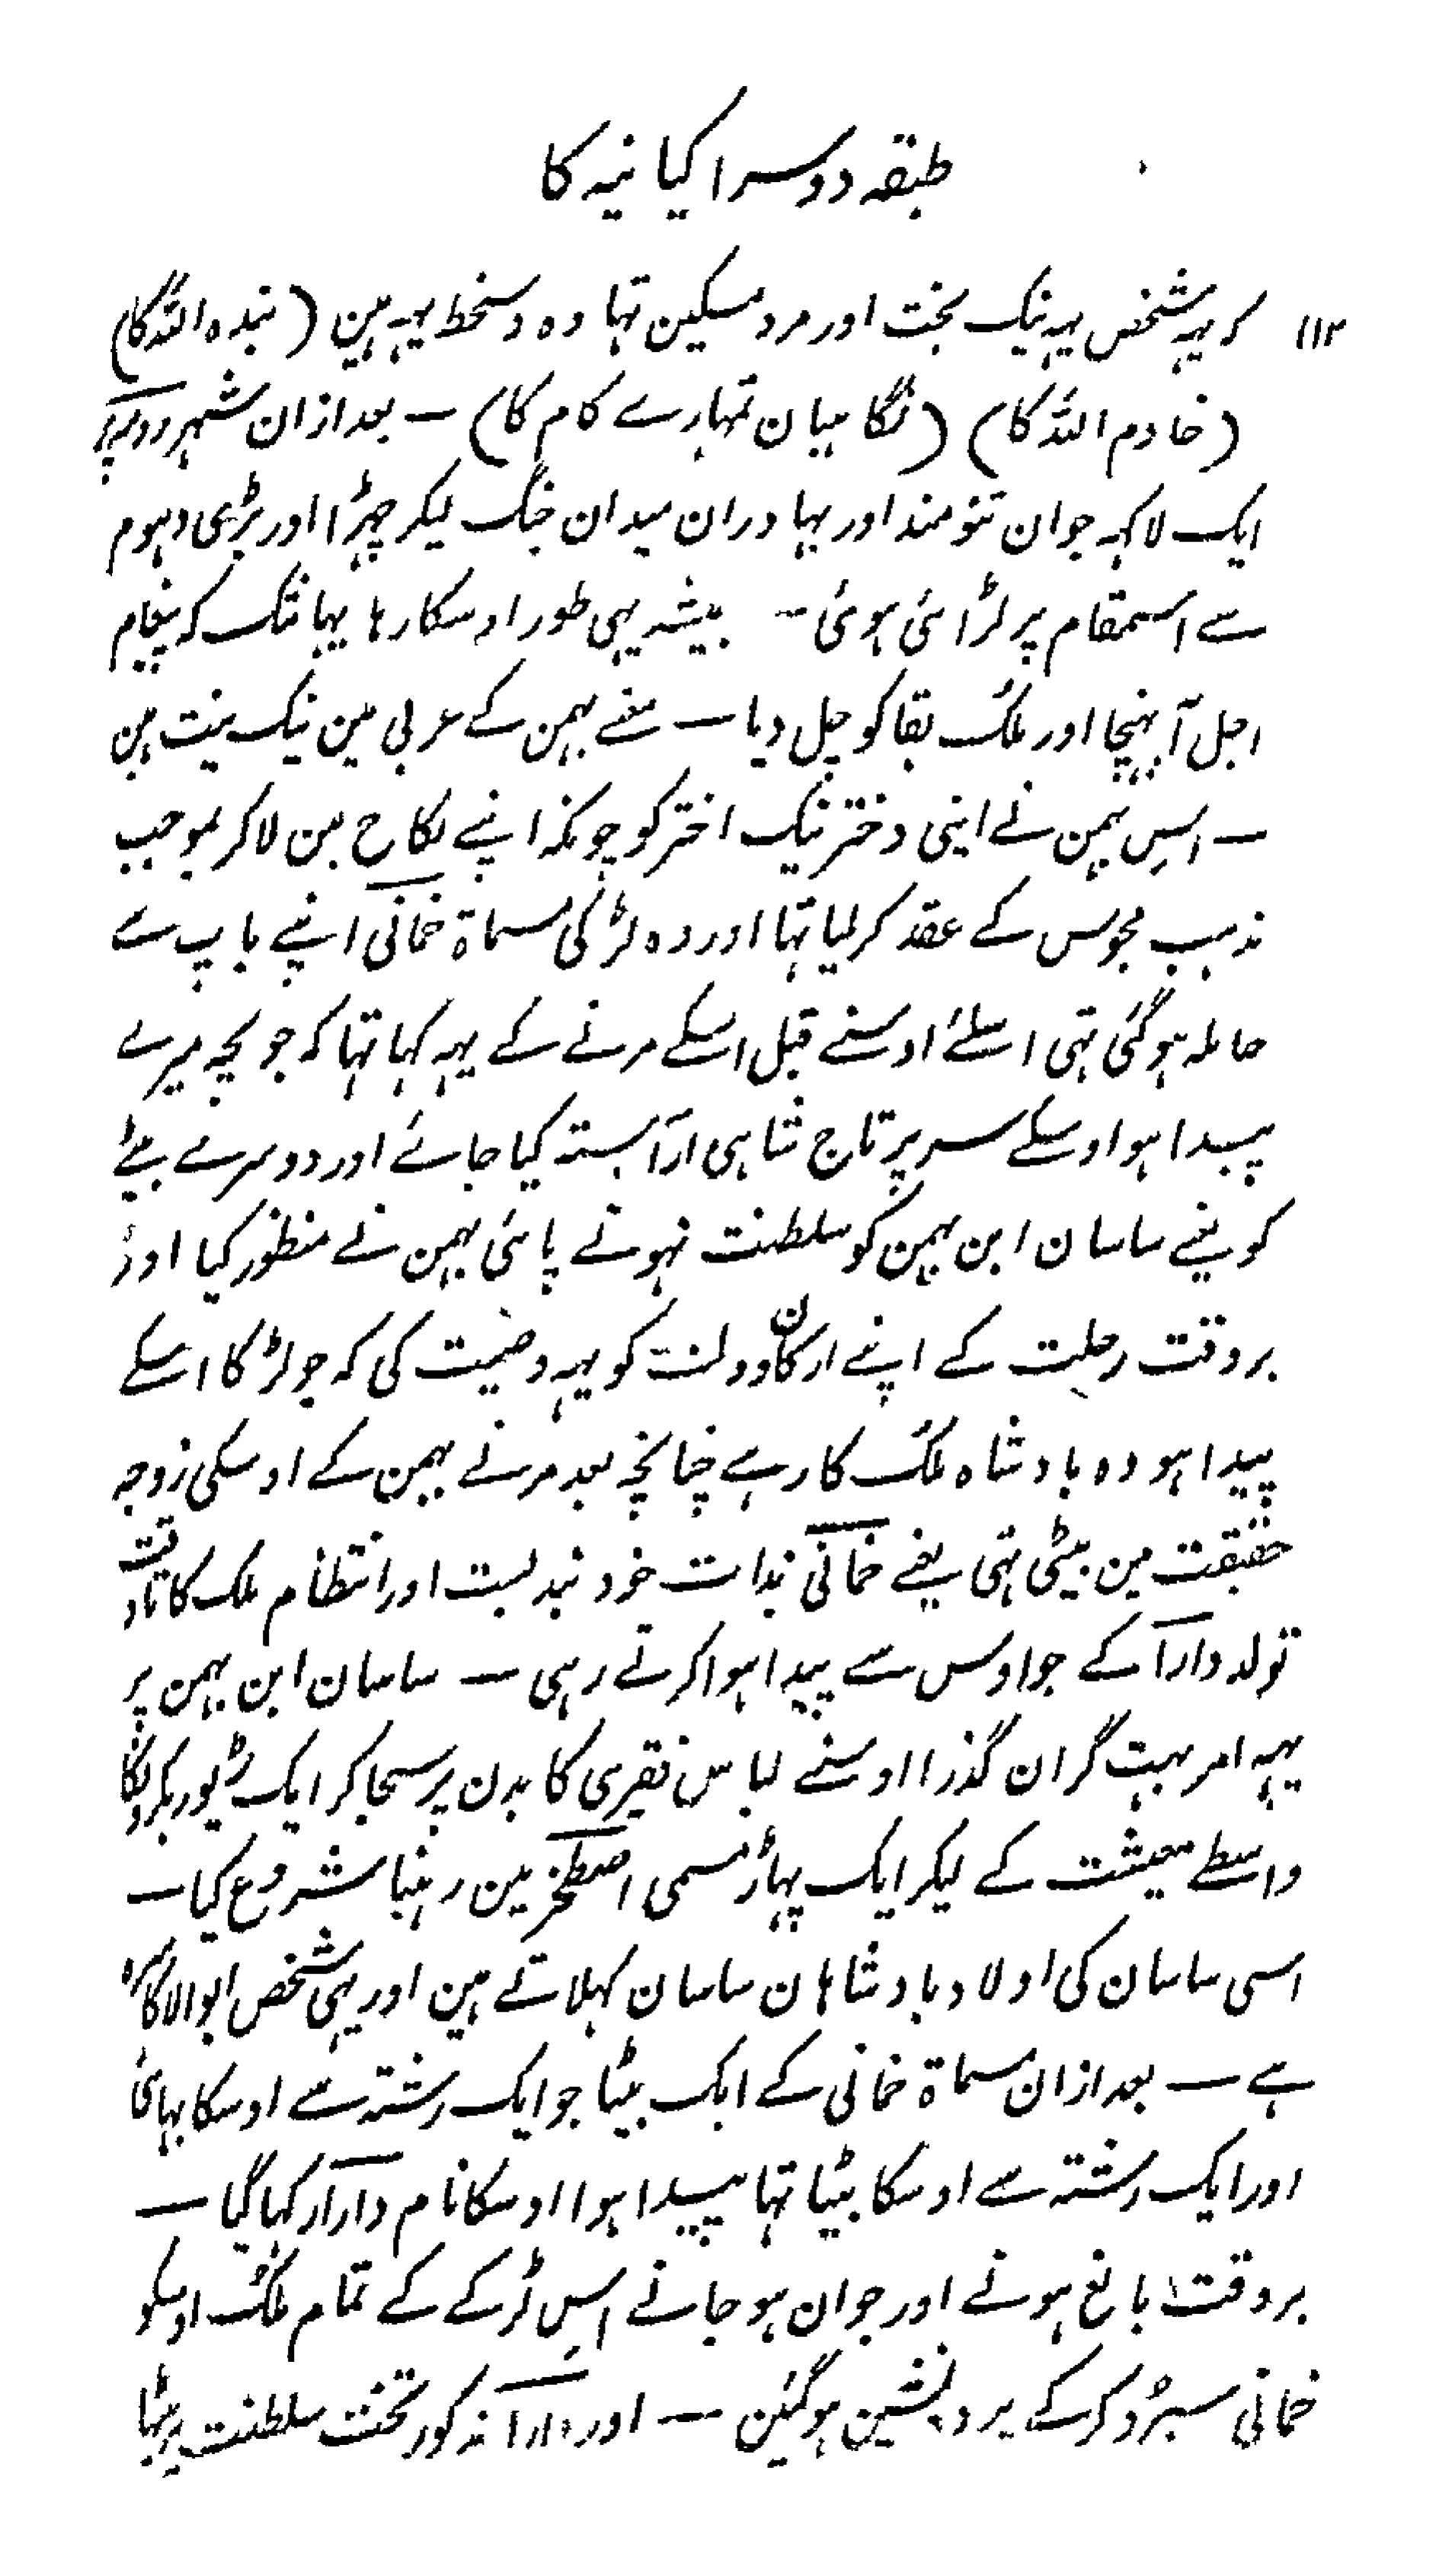 طبقہ دوسرا کیانیہ کا
۱۱۲ کہ یہہ شخص یہہ نیک بخت اور مرد مسکین تہا وہ دستخط یہہ ہین (بندہ اللہ کا)
(خادم اللہ کا) (نگاہبان تمہارے کام کا) — بعد ازان شہر پر
ایک لاکہہ جوان تنومند اور بہادران میدان جنگ لیکر چڑہا اور بڑی دہوم
سے اسمقام پر لڑائی ہوئی — ہمیشہ یہی طور اوسکا رہا یہانتک کہ پیغام
اجل آپہنچا اور ملک بقا کو چل دیا — معنے بہمن کے عربی مین نیک نیت ہین
— اس بہمن نے اپنی دختر نیک اختر کو چونکہ اپنے نکاح مین لا کر بموجب
مذہب مجوس کے عقد کر لیا تہا اور وہ لڑکی مسماۃ خمانی اپنے باپ سے
حاملہ ہوگئی تہی اسلئے اوسنے قبل اسکے مرنے کے یہہ کہا تہا کہ جو بچہ میرے
پیدا ہو اوسکے سر پر تاج شاہی آراستہ کیا جائے اور دوسرے بیٹے
کو یعنے ساسان ابن بہمن کو سلطنت نہونے پائی بہمن نے منظور کیا اور
بروقت رحلت کے اپنے ارکان دولت کو یہہ وصیت کی کہ جو لڑکا اسکے
پیدا ہو وہ بادشاہ ملک کا رہے چنانچہ بعد مرنے بہمن کے اوسکی زوجہ
حقیقت مین بیٹی تہی یعنے خمانی بذات خود بندبست اور انتظام ملک کا تا وقت
تولد دارا کے جو اوس سے پیدا ہوا کرتے رہی — ساسان ابن بہمن پر
یہہ امر بہت گران گذرا اوسنے لباس فقیری کا بدن پر سجا کر ایک ریوڑ بکریونکا
واسطے معیشت کے لیکر ایک پہاڑ مسمی اصطخر مین رہنا شروع کیا —
اسی ساسان کی اولاد بادشاہان ساسان کہلاتے ہین اور یہی شخص ابوالاکاسرہ
ہے — بعد ازان مسماۃ خمانی کے ایک بیٹا جو ایک رشتہ سے اوسکا بہائی
اور ایک رشتہ سے اوسکا بیٹا تہا پیدا ہوا اوسکا نام دارا رکہا گیا —
بروقت بالغ ہونے اور جوان ہو جانے اس لڑکے کے تمام ملک اوسکو
خمانی سپرد کرکے پردہ نشین ہوگئین — اور دارا مذکور تخت سلطنت پر بیٹہا